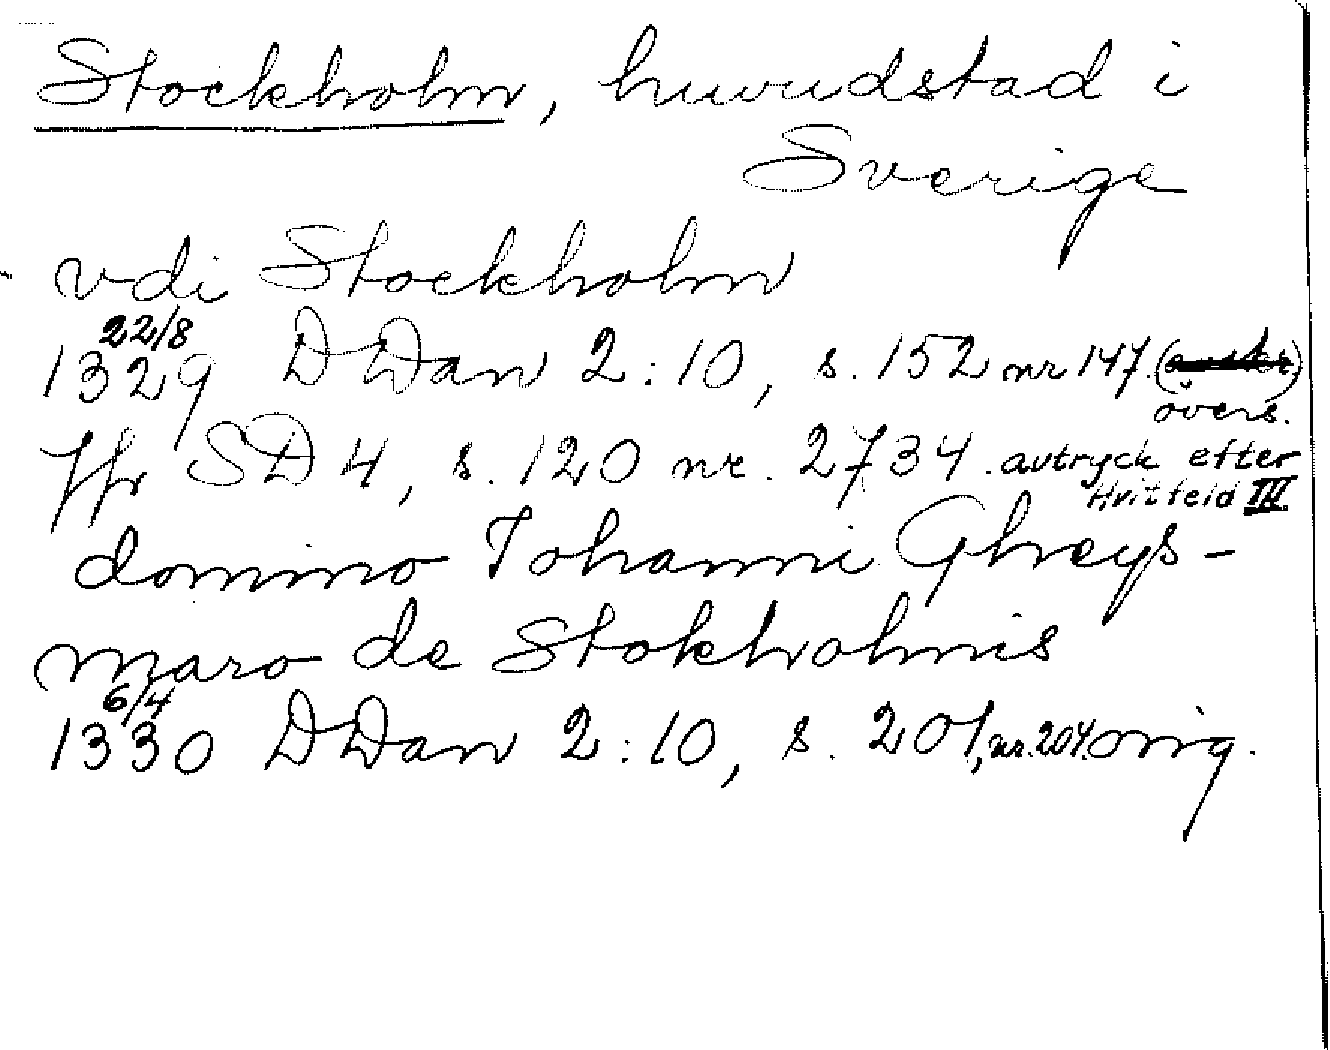 Stockholm, huvudstad i
Sverige
vdi Stockholm
22/8
1329 DDan 2:10, s. 152 nr 147. ( )
övers.
Jfr SD 4, s. 120 nr. 2734. avtryck efter
Hvitfeld III.
domino Johanni Gheys-
maro de Stokholmis
6/4
1330 DDan 2:10, s. 201, nr. 204. orig.